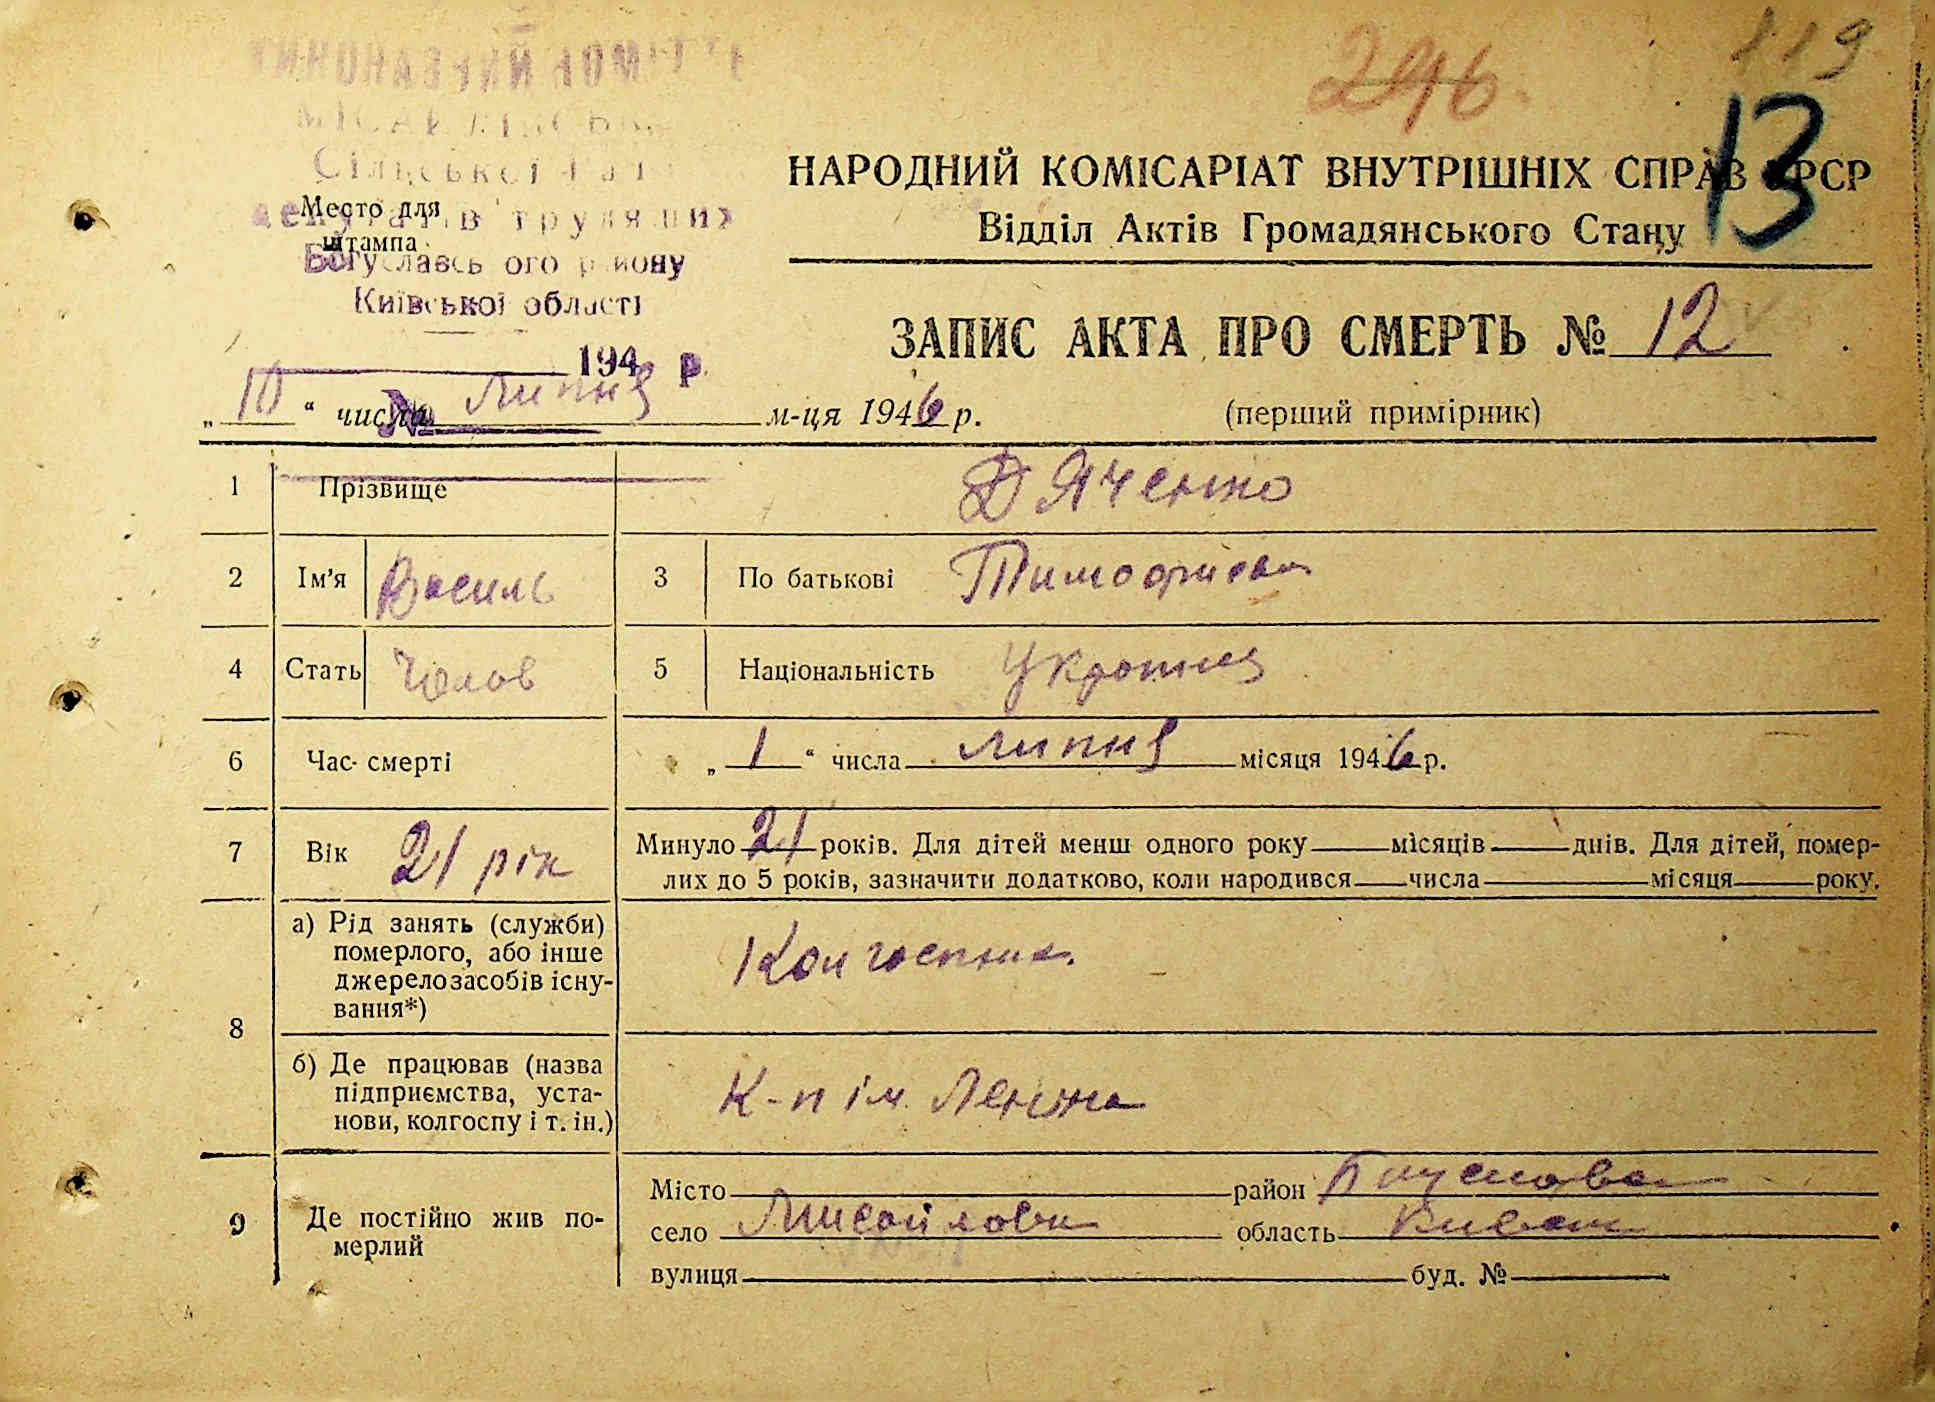 296.
119
13
Сільської
депутатів трудящих
Богуславського району
Київської області
Место для
штампа
194 р
№
НАРОДНИЙ КОМІСАРІАТ ВНУТРІШНІХ СПРАВ УРСР
Відділ Актів Громадянського Стану
ЗАПИС АКТА ПРО СМЕРТЬ № 12
„ 10 “ числа липня м-ця 1946 р.
(перший примірник)
1 Прізвище Дяченко
2 Ім’я Василь 3 По батькові
4 Стать Чолов 5 Національність
6 Час смерті „ 1 “ числа липня місяця 1946 р.
7 Вік 21 рік Минуло 21 років. Для дітей менш одного року місяців днів. Для дітей, помер-
лих до 5 років, зазначити додатково, коли народився числа місяця року.
8 а) Рід занять (служби)
померлого, або інше
джерело засобів існу-
вання*)
Колгоспник.
б) Де працював (назва
підприємства, уста-
нови, колгоспу і т. ін.)
К-п ім. Леніна
9 Де постійно жив по-
мерлий
Місто район
село область
вулиця буд. №